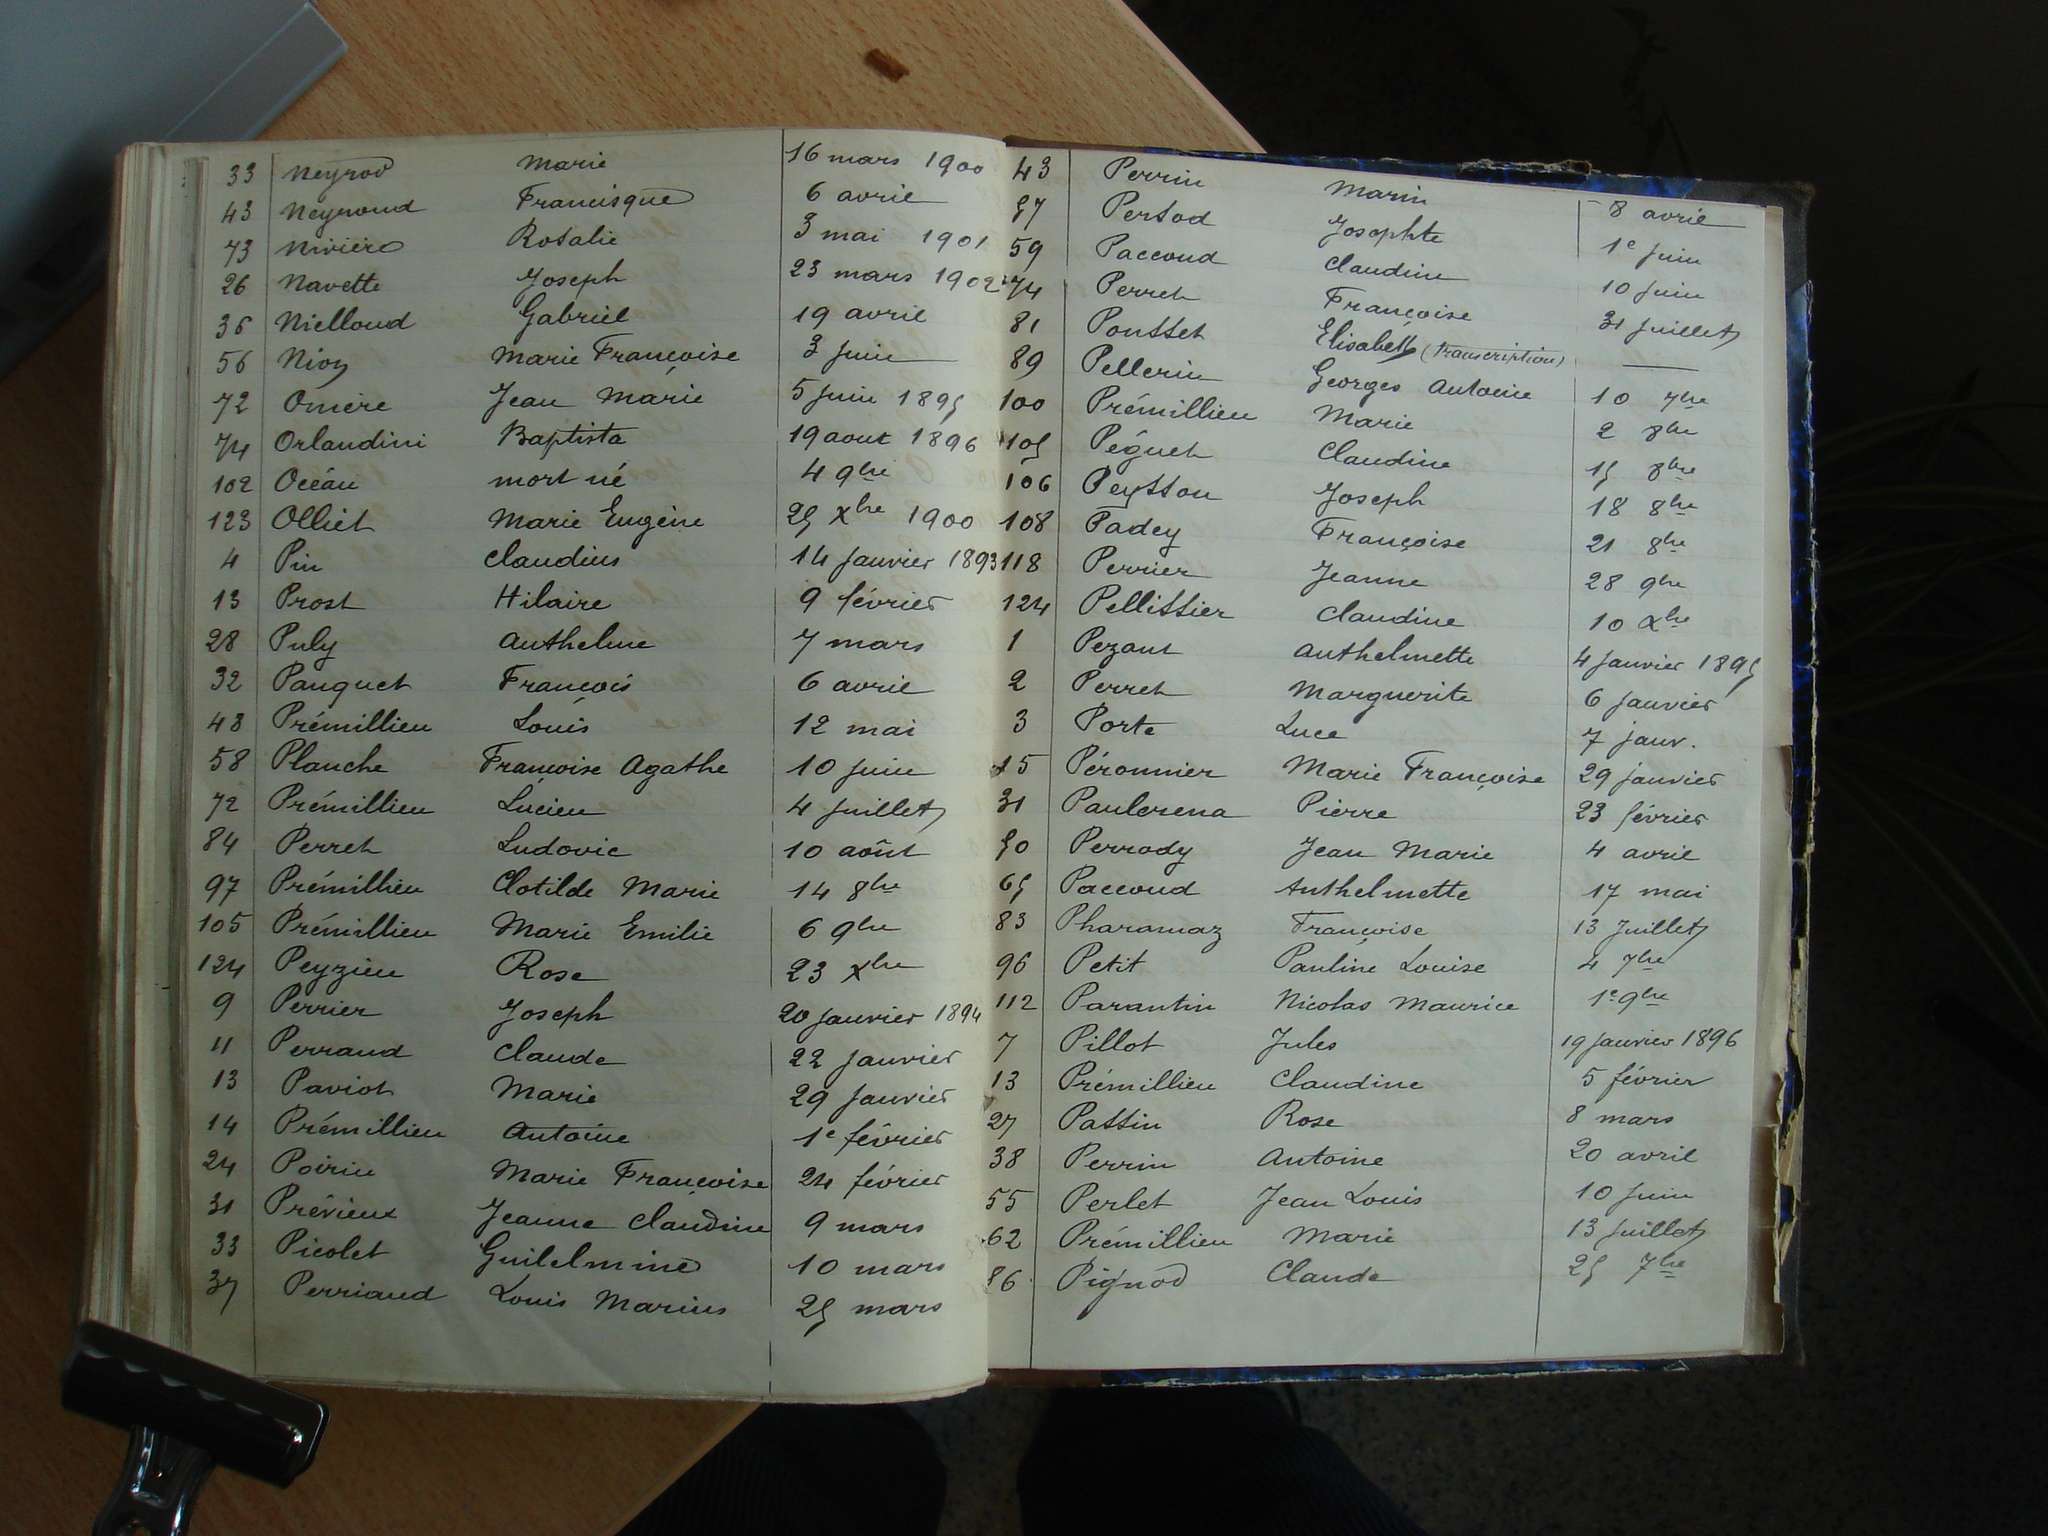 33 Neyrod Marie 16 mars 1900
43 Neyroud Francisque 6 avril
73 Nivière Rosalie 3 mai 1901
26 Navette Joseph 23 mars 1902
36 Nielloud Gabriel 19 avril
56 Nioz Marie Françoise 3 juin
72 Omère Jean Marie 5 juin 1895
74 Orlandini Baptista 19 aout 1896
102 Océan mort né 4 9bre
123 Olliet Marie Eugène 25 Xbre 1900
4 Pin Claudius 14 Janvier 1893
13 Prost Hilaire 9 février
28 Puly Anthelme 7 mars
32 Panquet François 6 avril
48 Prémillieu Louis 12 mai
58 Planche Françoise Agathe 10 juin
72 Prémillieu Lucien 4 Juillet
84 Perret Ludovic 10 août
97 Prémillieu Clotilde Marie 14 8bre
105 Prémillieu Marie Emilie 6 9bre
124 Peyzieu Rose 23 Xbre
9 Perrier Joseph 20 Janvier 1894
11 Perraud Claude 22 Janvier
13 Paviot Marie 29 Janvier
14 Prémillieu Antoine 1e février
24 Poirin Marie Françoise 24 février
31 Prévieux Jeanne Claudine 9 mars
33 Picolet Guilelmine 10 mars
37 Perriaud Louis Marius 25 mars
43 Perrin Marin 8 avril
57 Persod Josephte 1e Juin
59 Paccoud Claudine 10 Juin
74 Perret Françoise 31 Juillet
81 Pousset Elisabeth (transcription) —
89 Pellerin Georges Antoine 10 7bre
100 Prémillieu Marie 2 8bre
105 Péguet Claudine 15 8bre
106 Peysson Joseph 18 8bre
108 Padey Françoise 21 8bre
118 Perrier Jeanne 28 9bre
124 Pellissier Claudine 10 Xbre
1 Pezant Anthelmette 4 Janvier 1895
2 Perret Marguerite 6 Janvier
3 Porte Luce 7 janv.
15 Péronnier Marie Françoise 29 janvier
31 Paulerena Pierre 23 février
50 Perrody Jean Marie 4 avril
65 Paccoud Anthelmette 17 mai
83 Pharamaz Françoise 13 Juillet
96 Petit Pauline Louise 4 7bre
112 Parantin Nicolas Maurice 1e 9bre
7 Pillot Jules 19 Janvier 1896
13 Prémillieu Claudine 5 février
27 Passin Rose 8 mars
38 Perrin Antoine 20 avril
55 Perlet Jean Louis 10 Juin
62 Prémillieu Marie 13 Juillet
86 Pignod Claude 25 7bre